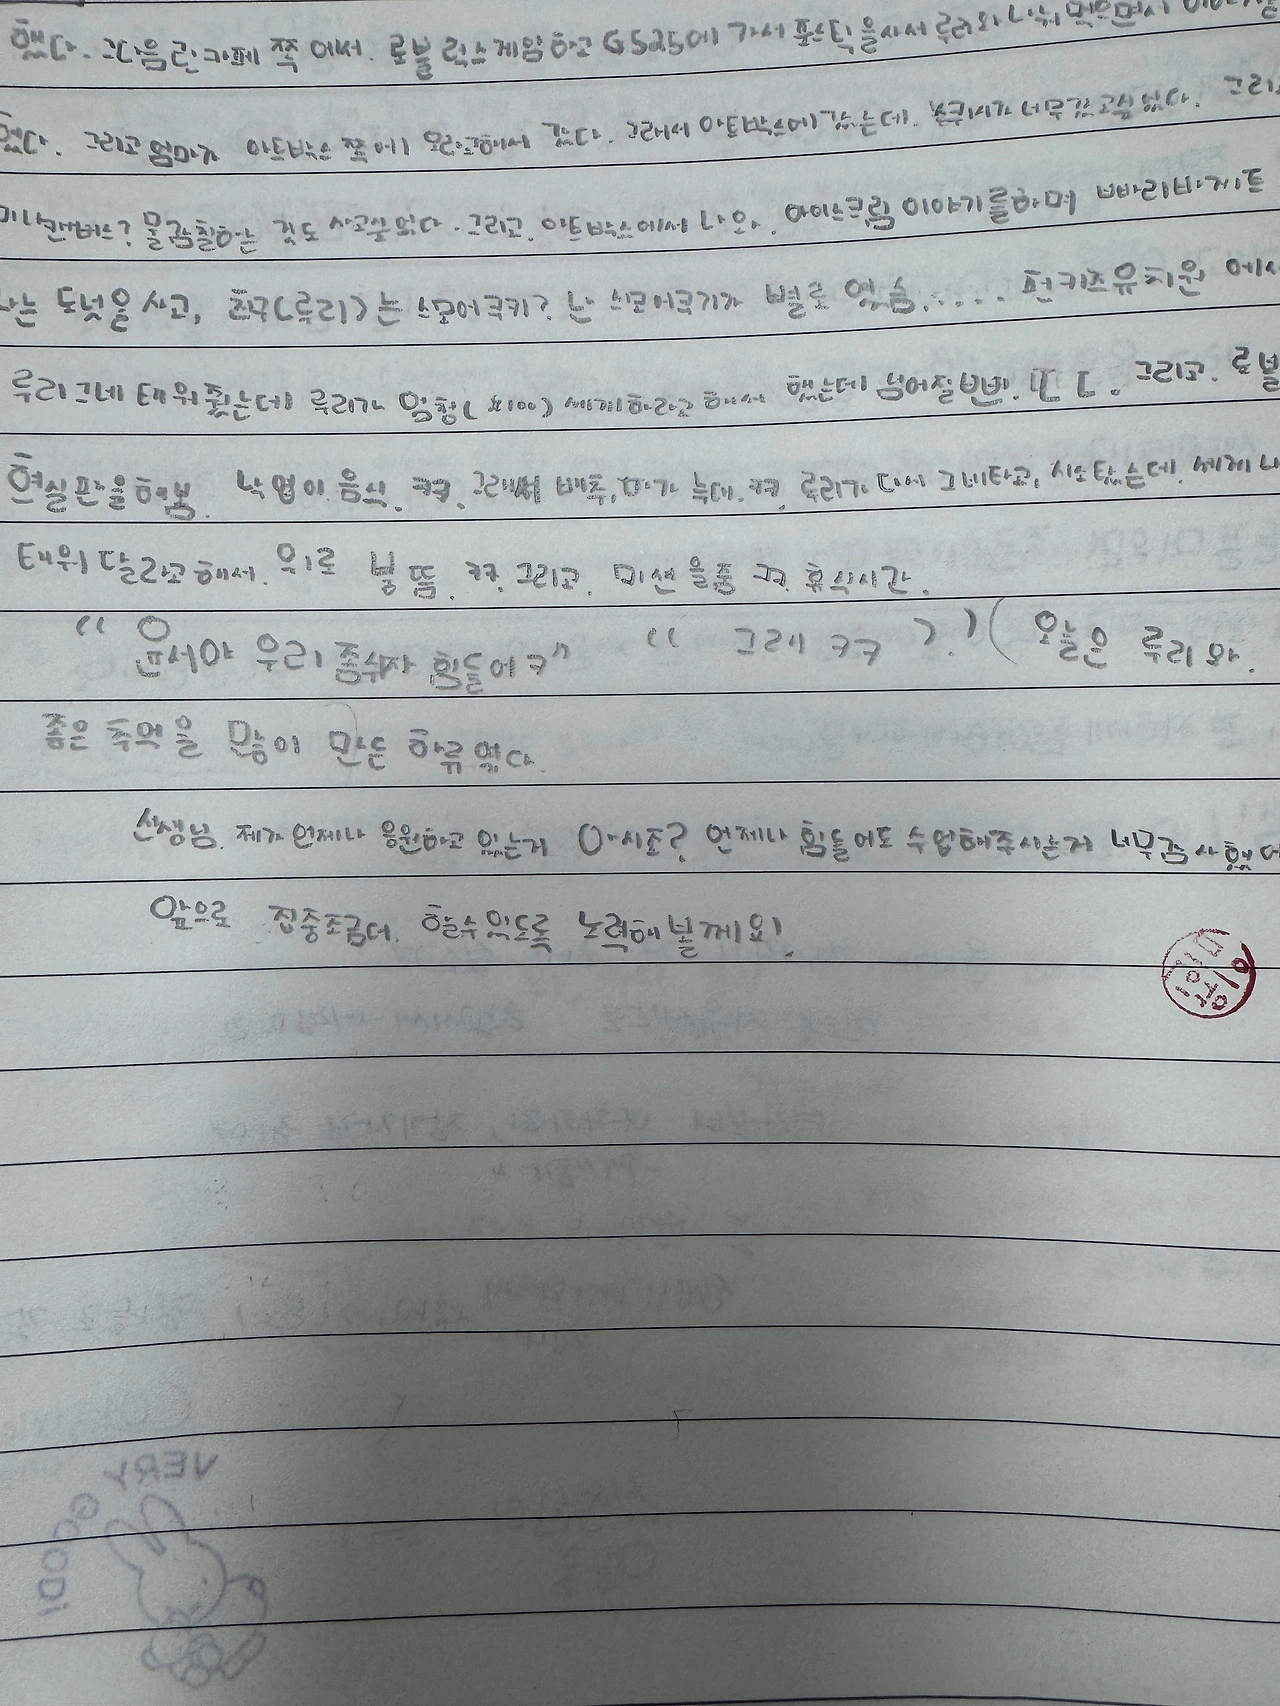 했다. 그다음 란 카페 쪽 에서. 로블럭스게임하고 GS25에 가서 포스틱을사서 루리와 나눠 먹으면서
했다. 그리고 엄마가 아트박스 쪽에 오라고해서 갔다. 그래서 아트박스에 갔는데. 스퀴시가 너무갖고싶었다. 그리고
미니캔버스? 물감칠하는 것도 사고싶었다. 그리고. 아트박스에서 나와. 아이스크림 이야기를하며 빠리바게트
나는 도넛을 사고, 친구(루리)는 스모어쿠키? 난 스모어쿠키가 별로 였음..... 펀키즈유치원 에서
루리 그네 태워줬는데 루리가 엄청(x100) 세게하라고 해서 했는데 넘어질뻔. ㄷㄷ. 그리고. 로블
현실판을해봄. 낙엽이 음식. ㅋㅋ. 그래서 배추, 마가 늑대. ㅋㅋ. 루리가 다에 그네타고, 시소탔는데. 세게
태워 달라고해서. 위로 붕 뜸. ㅋㅋ. 그리고. 미션을줌 ㅋㅋ. 휴식시간.
“ 윤서야 우리 좀쉬자 힘들어ㅋ” “ 그래 ㅋㅋ ” ( 오늘은 루리와.
좋은 추억을 많이 만든 하루였다.
선생님. 제가언제나 응원하고 있는거 아시죠? 언제나 힘들어도 수업해주시는거 너무감사했어
앞으로 집중조금더. 할수있도록 노력해볼께요!
VERY GOOD!